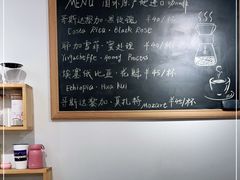 MENU 国际原产地进口
哥斯达黎加·黑玫瑰 ￥40/杯
Costa Rica · Black Rose
耶加雪菲·蜜处理 ￥40/杯
Yirgacheffe · Honey Process
埃塞俄比亚·花魁 ￥45/杯
Ethiopia · Hua kui
哥斯达黎加·莫扎特 Mozart ￥45/杯